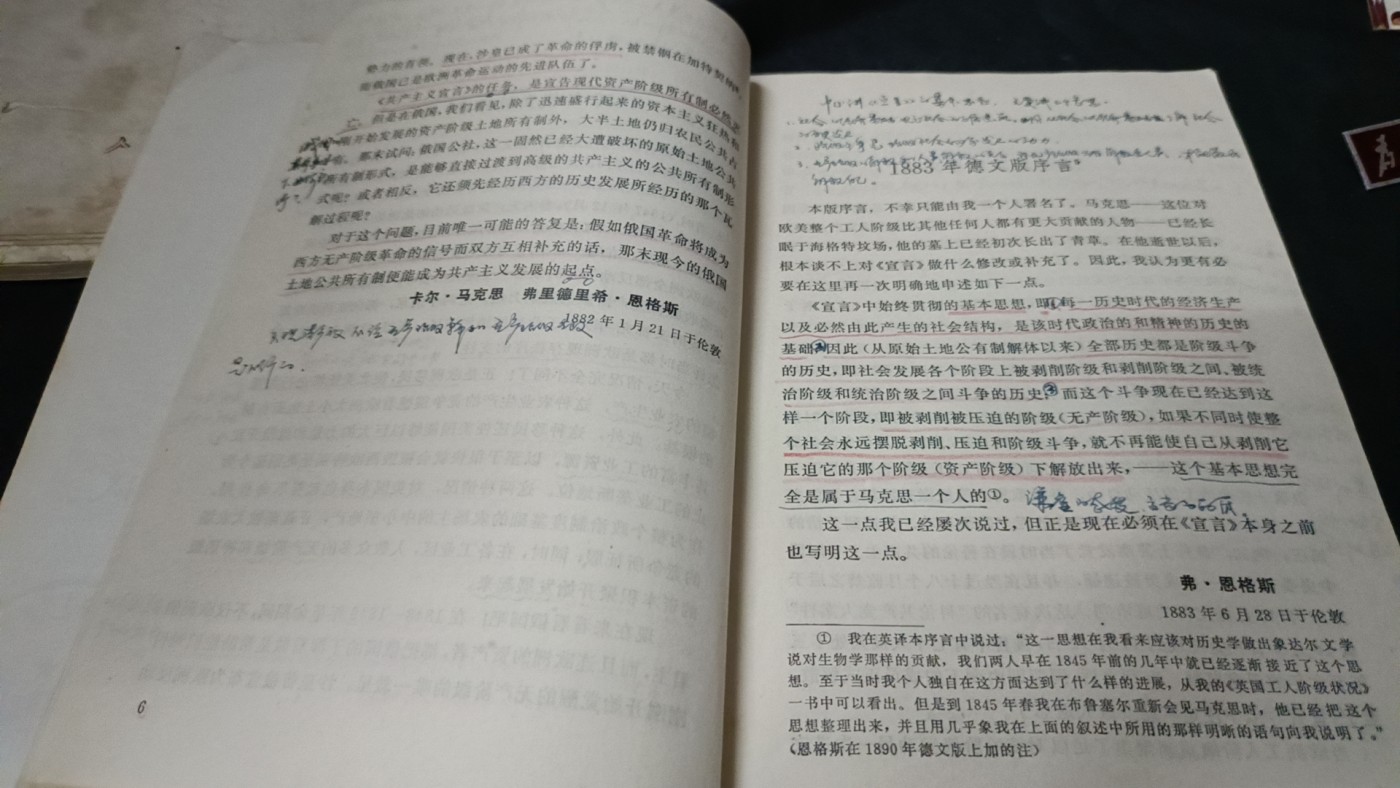 势力的首领。现在,沙皇已成了革命的俘虏,被禁锢在加特契纳,
而俄国已是欧洲革命运动的先进队伍了。
《共产主义宣言》的任务,是宣告现代资产阶级所有制必然
但是在俄国,我们看见,除了迅速盛行起来的资本主义狂热和
刚开始发展的资产阶级土地所有制外,大半土地仍归农民公共占
有。那末试问:俄国公社,这一固然已经大遭破坏的原始土地公共
所有制形式,是能够直接过渡到高级的共产主义的公共所有制形
式呢?或者相反,它还须先经历西方的历史发展所经历的那个瓦
解过程呢?
对于这个问题,目前唯一可能的答复是:假如俄国革命将成为
西方无产阶级革命的信号而双方互相补充的话,那末现今的俄国
土地公共所有制便能成为共产主义发展的起点。
卡尔·马克思 弗里德里希·恩格斯
1882年1月21日于伦敦
6
1883年德文版序言
本版序言,不幸只能由我一个人署名了。马克思——这位对
欧美整个工人阶级比其他任何人都有更大贡献的人物——已经长
眠于海格特坟场,他的墓上已经初次长出了青草。在他逝世以后,
根本谈不上对《宣言》做什么修改或补充了。因此,我认为更有必
要在这里再一次明确地申述如下一点。
《宣言》中始终贯彻的基本思想,即:每一历史时代的经济生产
以及必然由此产生的社会结构,是该时代政治的和精神的历史的
基础;因此(从原始土地公有制解体以来)全部历史都是阶级斗争
的历史,即社会发展各个阶段上被剥削阶级和剥削阶级之间、被统
治阶级和统治阶级之间斗争的历史;而这个斗争现在已经达到这
样一个阶段,即被剥削被压迫的阶级(无产阶级),如果不同时使整
个社会永远摆脱剥削、压迫和阶级斗争,就不再能使自己从剥削它
压迫它的那个阶级(资产阶级)下解放出来,——这个基本思想完
全是属于马克思一个人的①。
这一点我已经屡次说过,但正是现在必须在《宣言》本身之前
也写明这一点。
弗·恩格斯
1883年6月28日于伦敦
① 我在英译本序言中说过:“这一思想在我看来应该对历史学做出象达尔文学
说对生物学那样的贡献,我们两人早在1845年前的几年中就已经逐渐接近了这个思
想。至于当时我个人独自在这方面达到了什么样的进展,从我的《英国工人阶级状况》
一书中可以看出。但是到1845年春我在布鲁塞尔重新会见马克思时,他已经把这个
思想整理出来,并且用几乎象我在上面的叙述中所用的那样明晰的语句向我说明了。”
(恩格斯在1890年德文版上加的注)